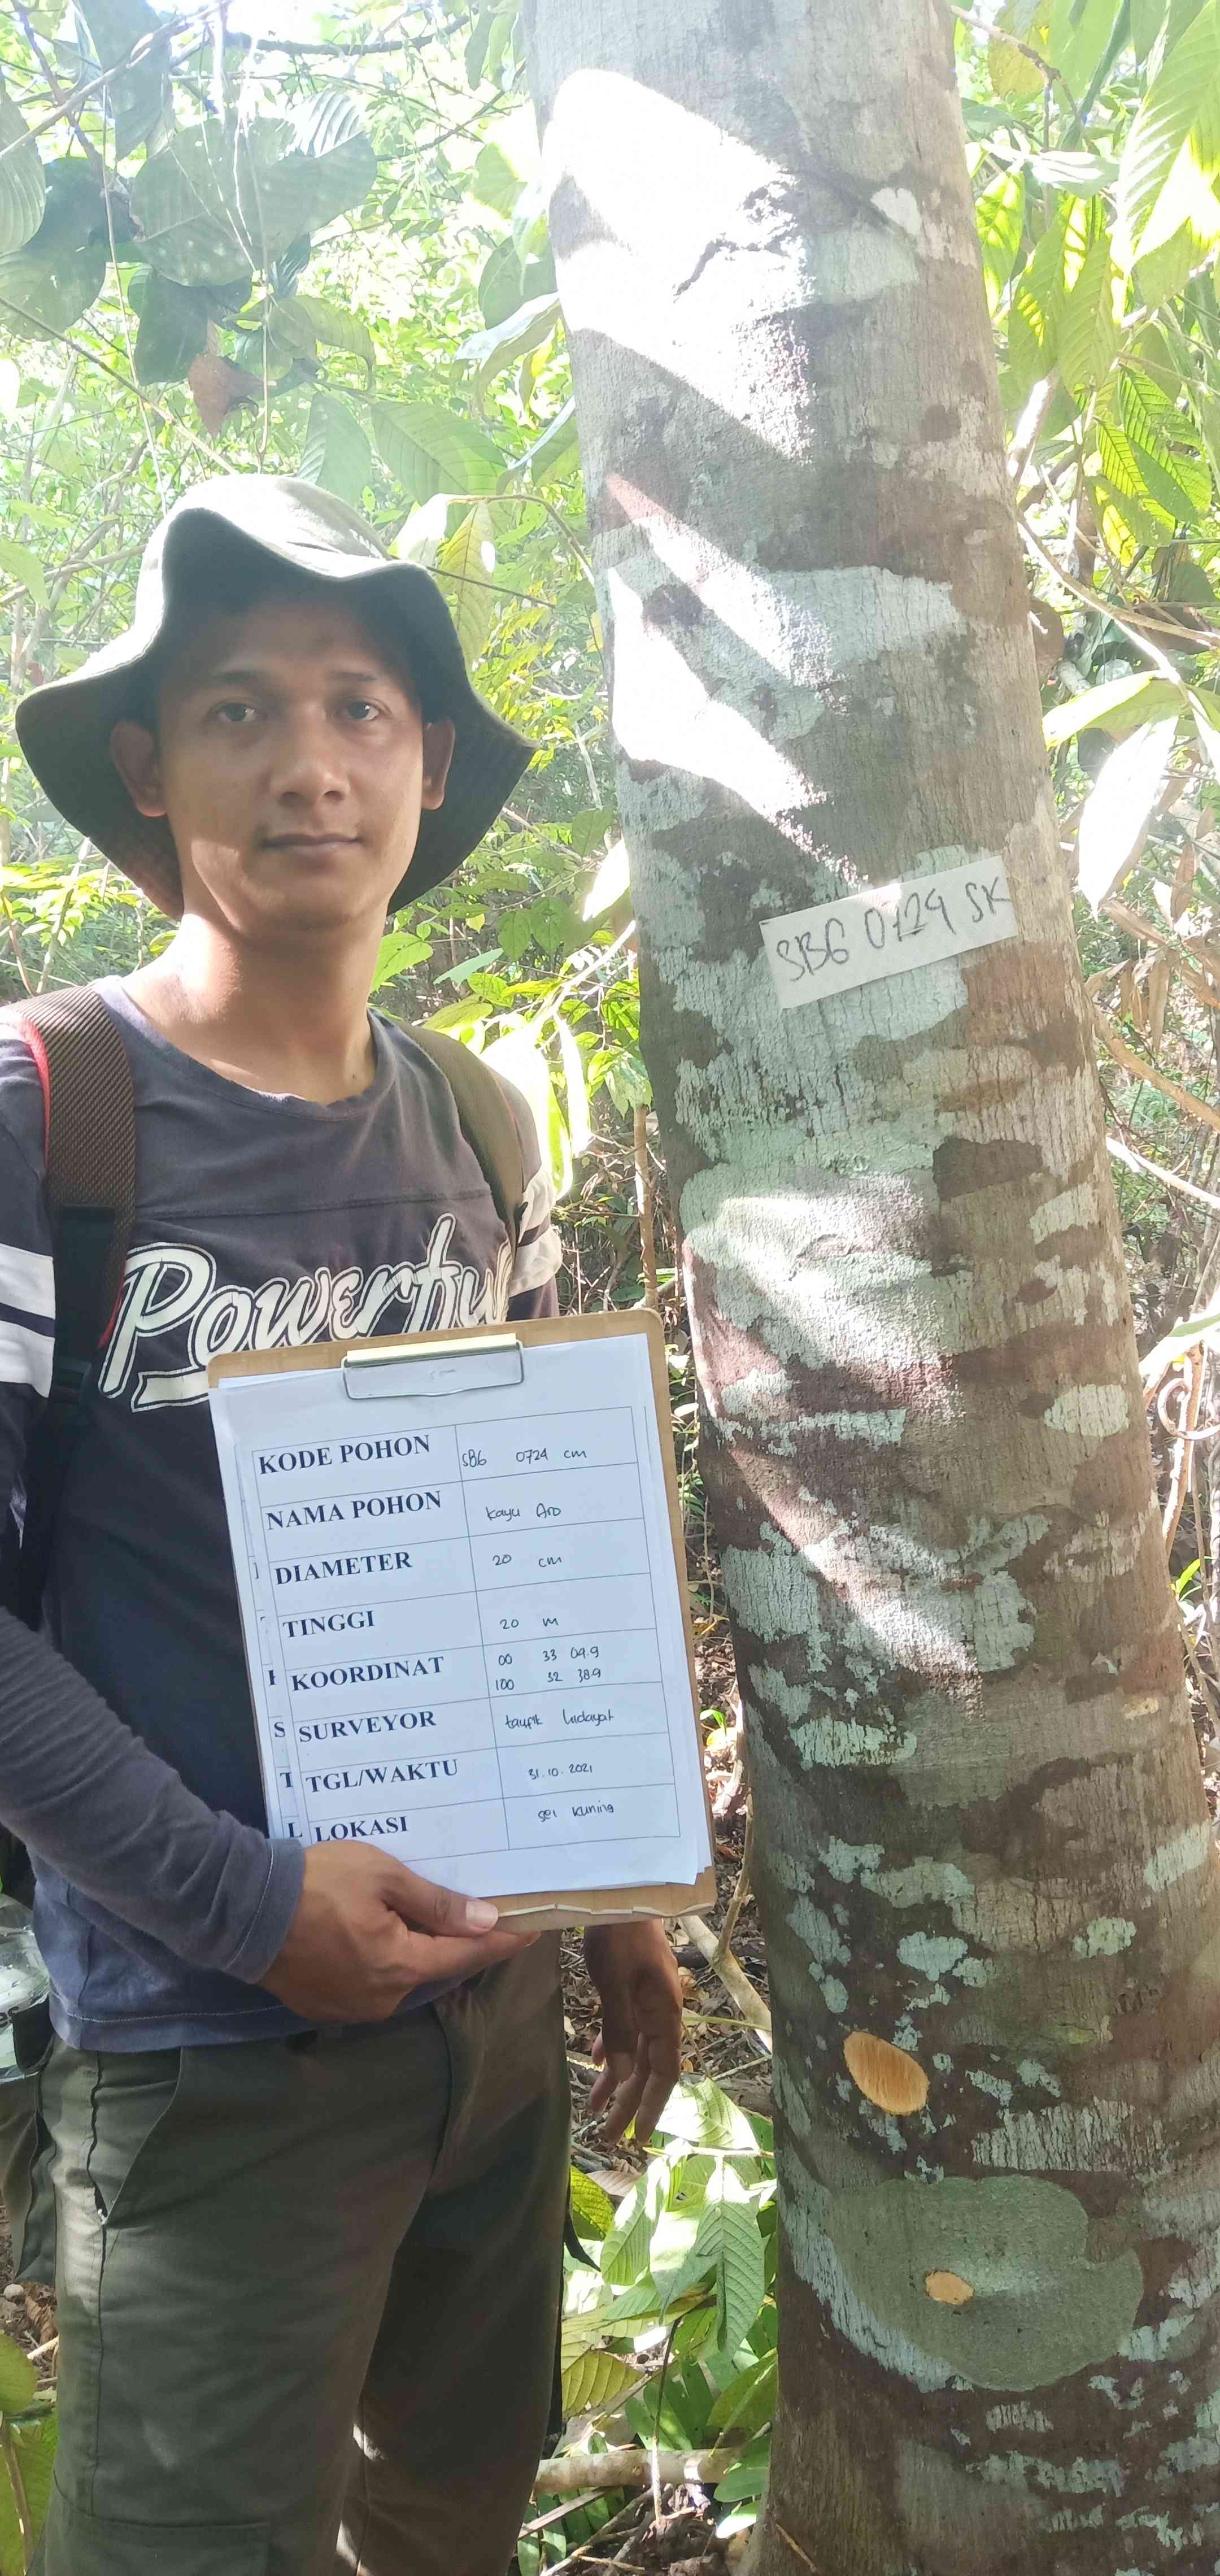 SBG 0724 SK
Powerful
KODE POHON SBG 0724 cm
NAMA POHON kayu Aro
DIAMETER 20 cm
TINGGI 20 m
KOORDINAT 00 33 09.9
100 32 38.9
SURVEYOR taufik hidayat
TGL/WAKTU 31.10.2021
LOKASI sei kuning